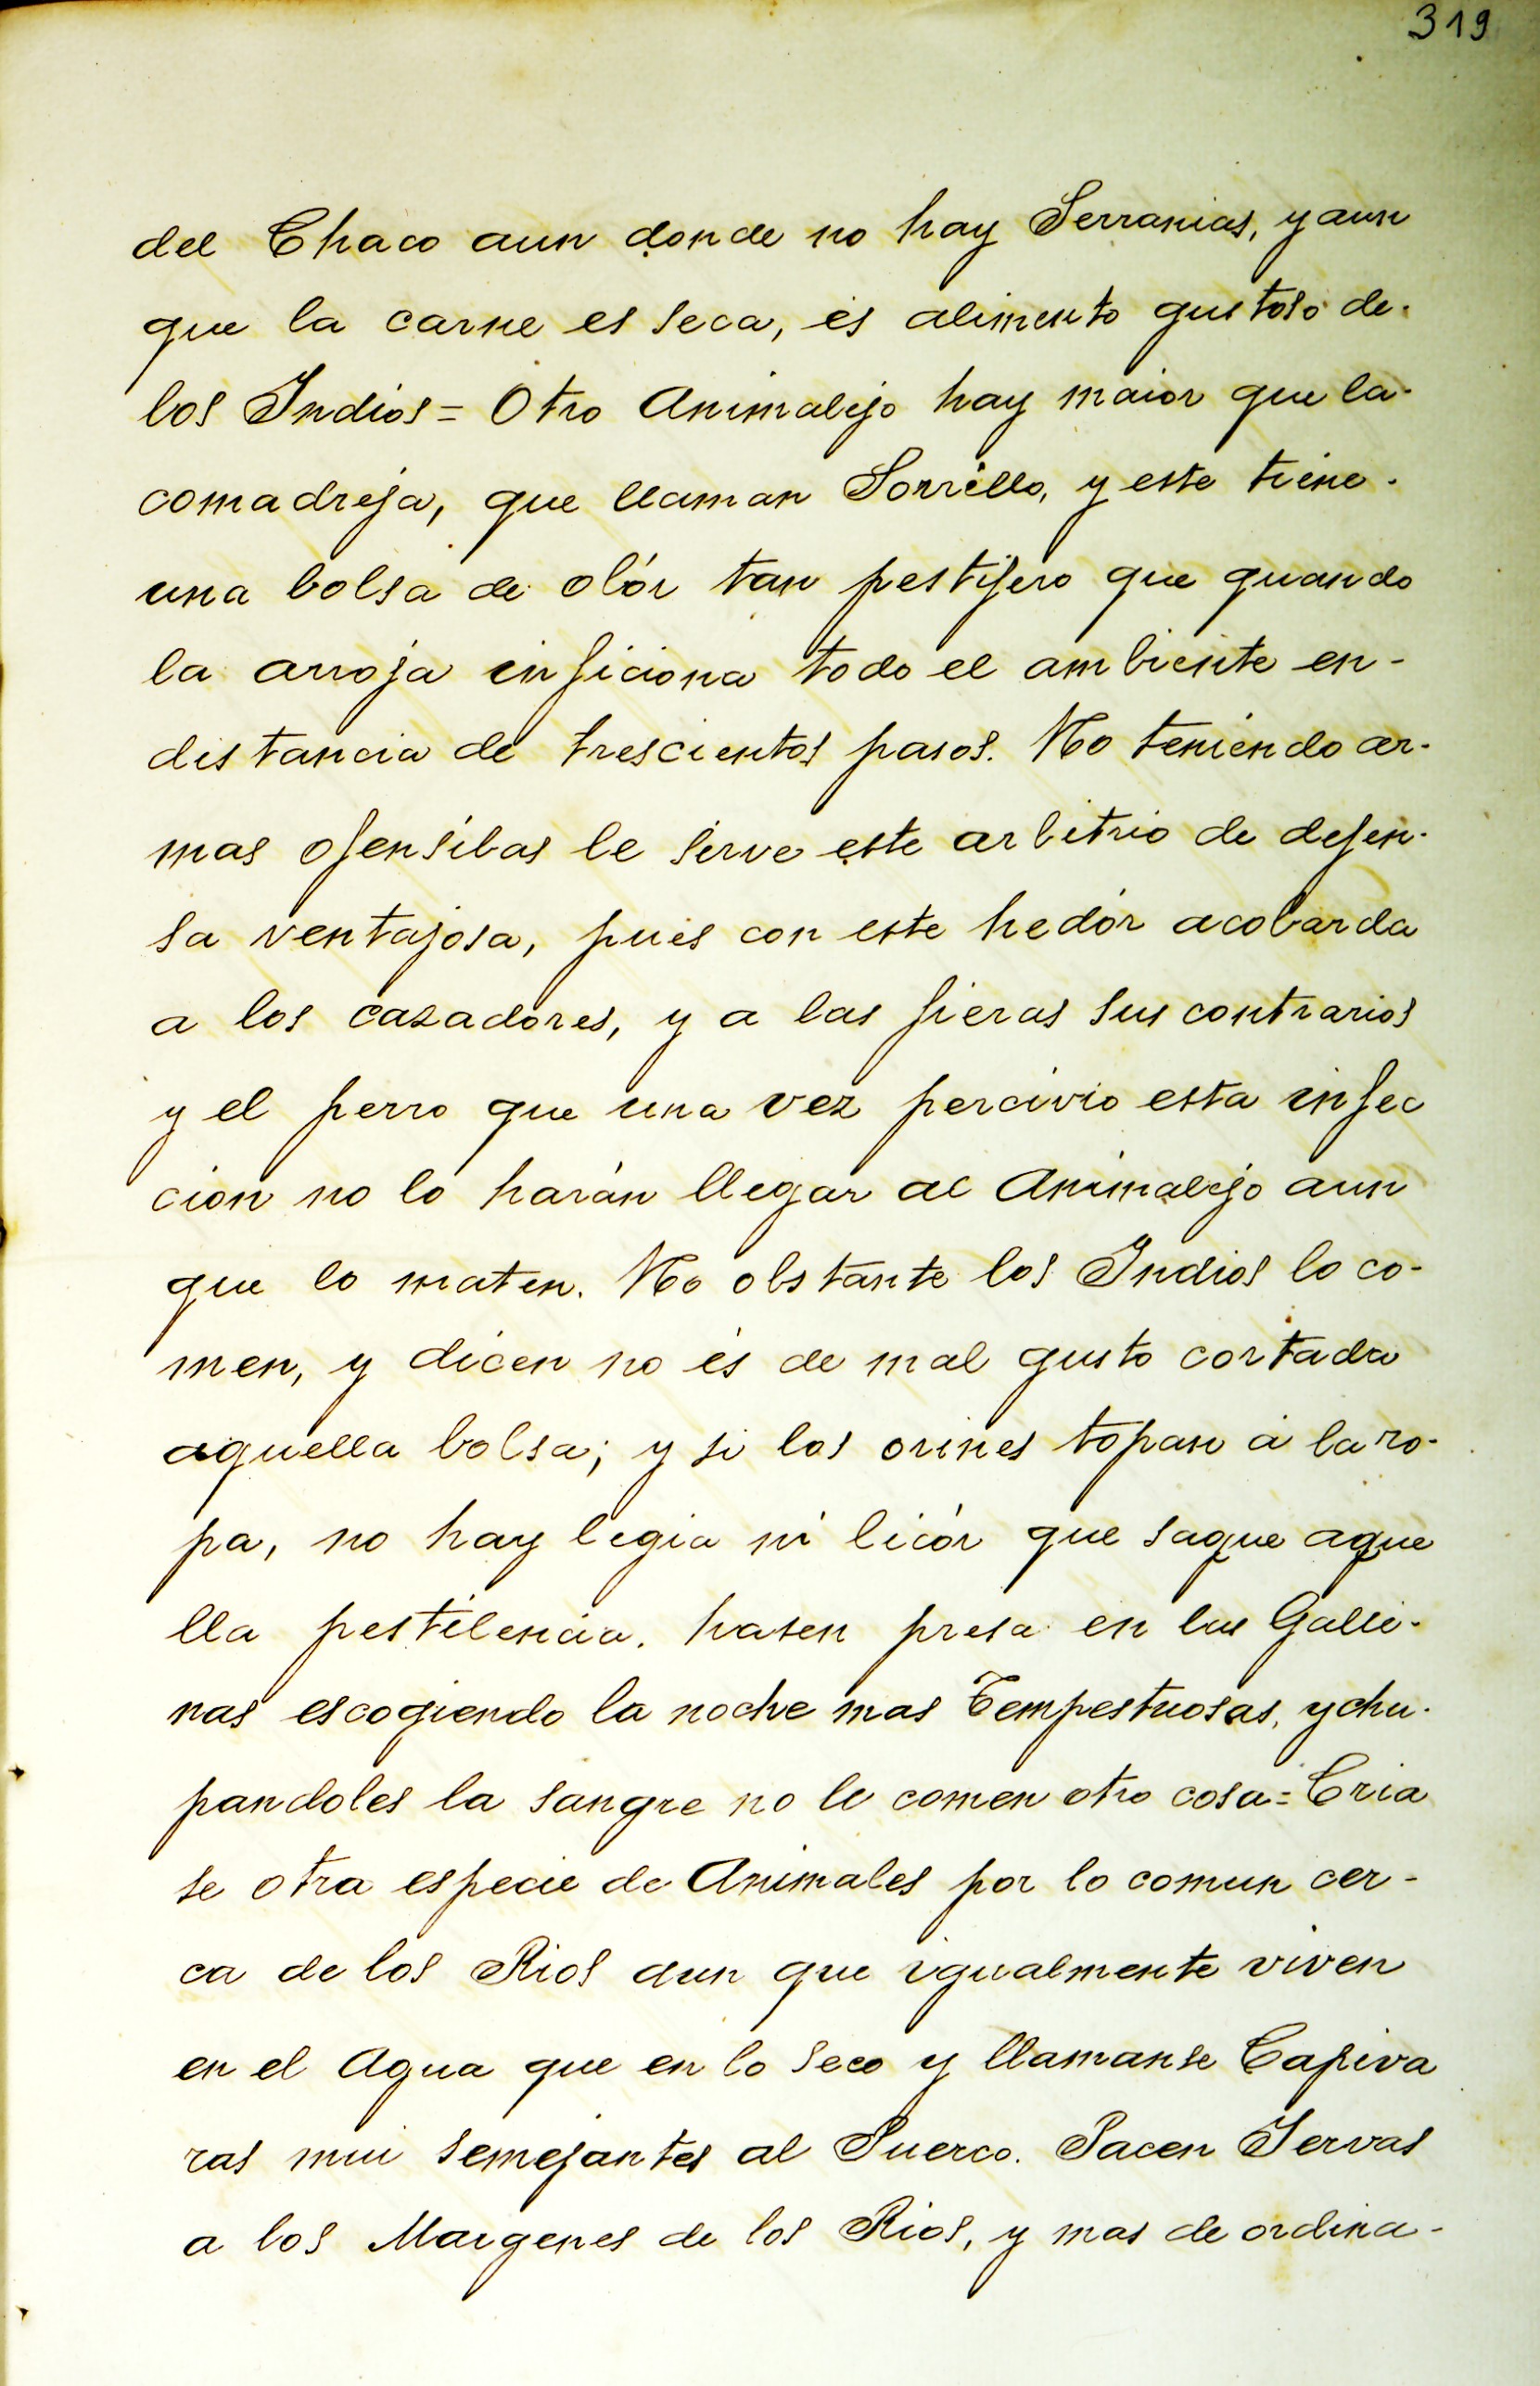 319
del Chaco aun donde no hay Serranias, y aun
que la carne es seca, és alimento gustoso de-
los Indios = Otro Animalejo hay maior que la-
comadreja, que llaman Sorrillo, y este tiene-
una bolsa de olór tan pestifero que quando
la arroja inficiona todo el ambiente en-
distancia de trescientos pasos. No teniendo ar-
mas ofensibas le serve este arbitrio de defen-
sa ventajosa, pues con este hedór acobarda
a los cazadores, y a las fieras sus contrarios
y el perro que una vez percivio esta infec
cion no lo harán llegar al Animalejo aun
que lo maten. No obstante los Indios lo co-
men, y dicen no és de mal gusto cortada
aquella bolsa; y si los orines topan á la ro-
pa, no hay legia ni licór que saque aque
lla pestilencia. hasen presa en las Galli-
nas escogiendo la noche mas Tempestuosas, y chu-
pandoles la sangre no le comen otro cosa = Cria
se otra especie de Animales por lo comun cer-
ca de los Rios aun que igualmente viven
en el Agua que en lo seco y llamanse Capiva
ras mui semejantes al Puerco. Pacen Iervas
a los Margenes de los Rios, y mas de ordina-